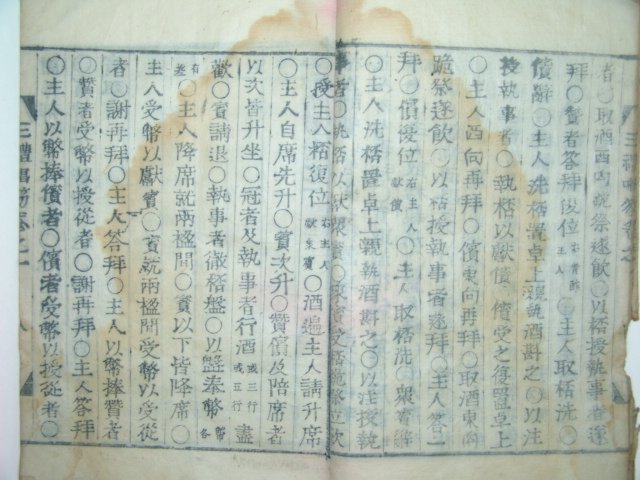 者○取酒西向跪祭遂飮○以桮授執事者遂
拜○贊者答拜復位 右獻贊者 主人 ○主人取桮洗○
儐辭○主人洗桮置卓上親執酒斟之○以注
授執事者○執桮以獻儐○儐受之復置卓上
○主人西向再拜○儐東向再拜○取酒東向
跪祭遂飮○以桮授執事者遂拜○主人答一
拜○儐復位 右主人獻儐 ○主人取桮洗○衆賓辭
○主人洗桮置卓上親執酒斟之○以注授執
事者○執桮以獻衆賓○衆賓受桮跪祭立飮
○授主人桮復位 右主人獻衆賓 ○酒遍主人請升席
○主人自席先升○賓次升○贊儐及陪席者
以次皆升坐○冠者及執事者行酒 或三行或五行 盡
歡○賓請退○執事者徹桮盤○以盤奉幣 幣各
有差 ○主人降席就兩楹間○賓以下皆降席○
主人受幣以獻賓○賓就兩楹間受幣以受從
者○謝再拜○主人答拜○主人以幣捧贊者
○贊者受幣以授從者○謝再拜○主人答拜
○主人以幣捧儐者○儐者受幣以授從者○
三禮 卷之一 八